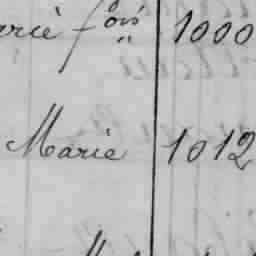 fois 1000
Marie 1012